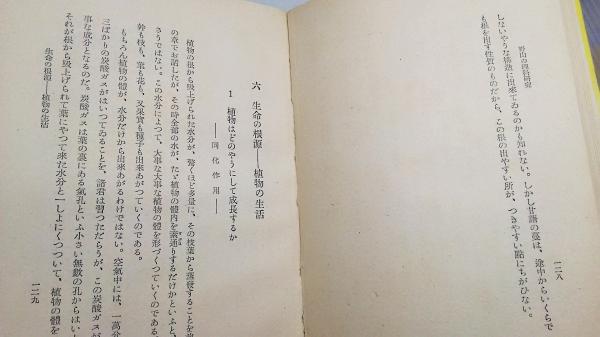 野山の理科研究
一二八
しないやうな構造に出来てゐるのかも知れない。しかし甘藷の蔓は、途中からいくらで
も根を出す性質のものだから、この根の出やすい所が、つきやすい點にちがひない。
六 生命の根源——植物の生活
1 植物はどのやうにして成長するか
——同化作用——
植物の根から吸上げられた水分が、驚くほど多量に、その枝葉から蒸發することを
の章でお話したが、その時全部の水が、たゞ植物の體內を素通りするだけかといふと、
さうではない。この水分によつて、大事な大事な植物の體を形づくつていくのである。
幹も枝も、葉も花も、又果實も種子も出來あがつていくのである。
もちろん植物の體が、水分だけから出來あがるわけではない。空氣中には、一萬分
三ばかりの炭酸ガスがはいつてゐることを、諸君は習つただらうが、この炭酸ガスが
事な成分となるのだ。炭酸ガスは葉の裏にある氣孔といふ小さい無數の孔からはいり
それが根から吸上げられて葉にやつて來た水分と一しよにくつついて、植物の體を
生命の根源——植物の生活
一二九